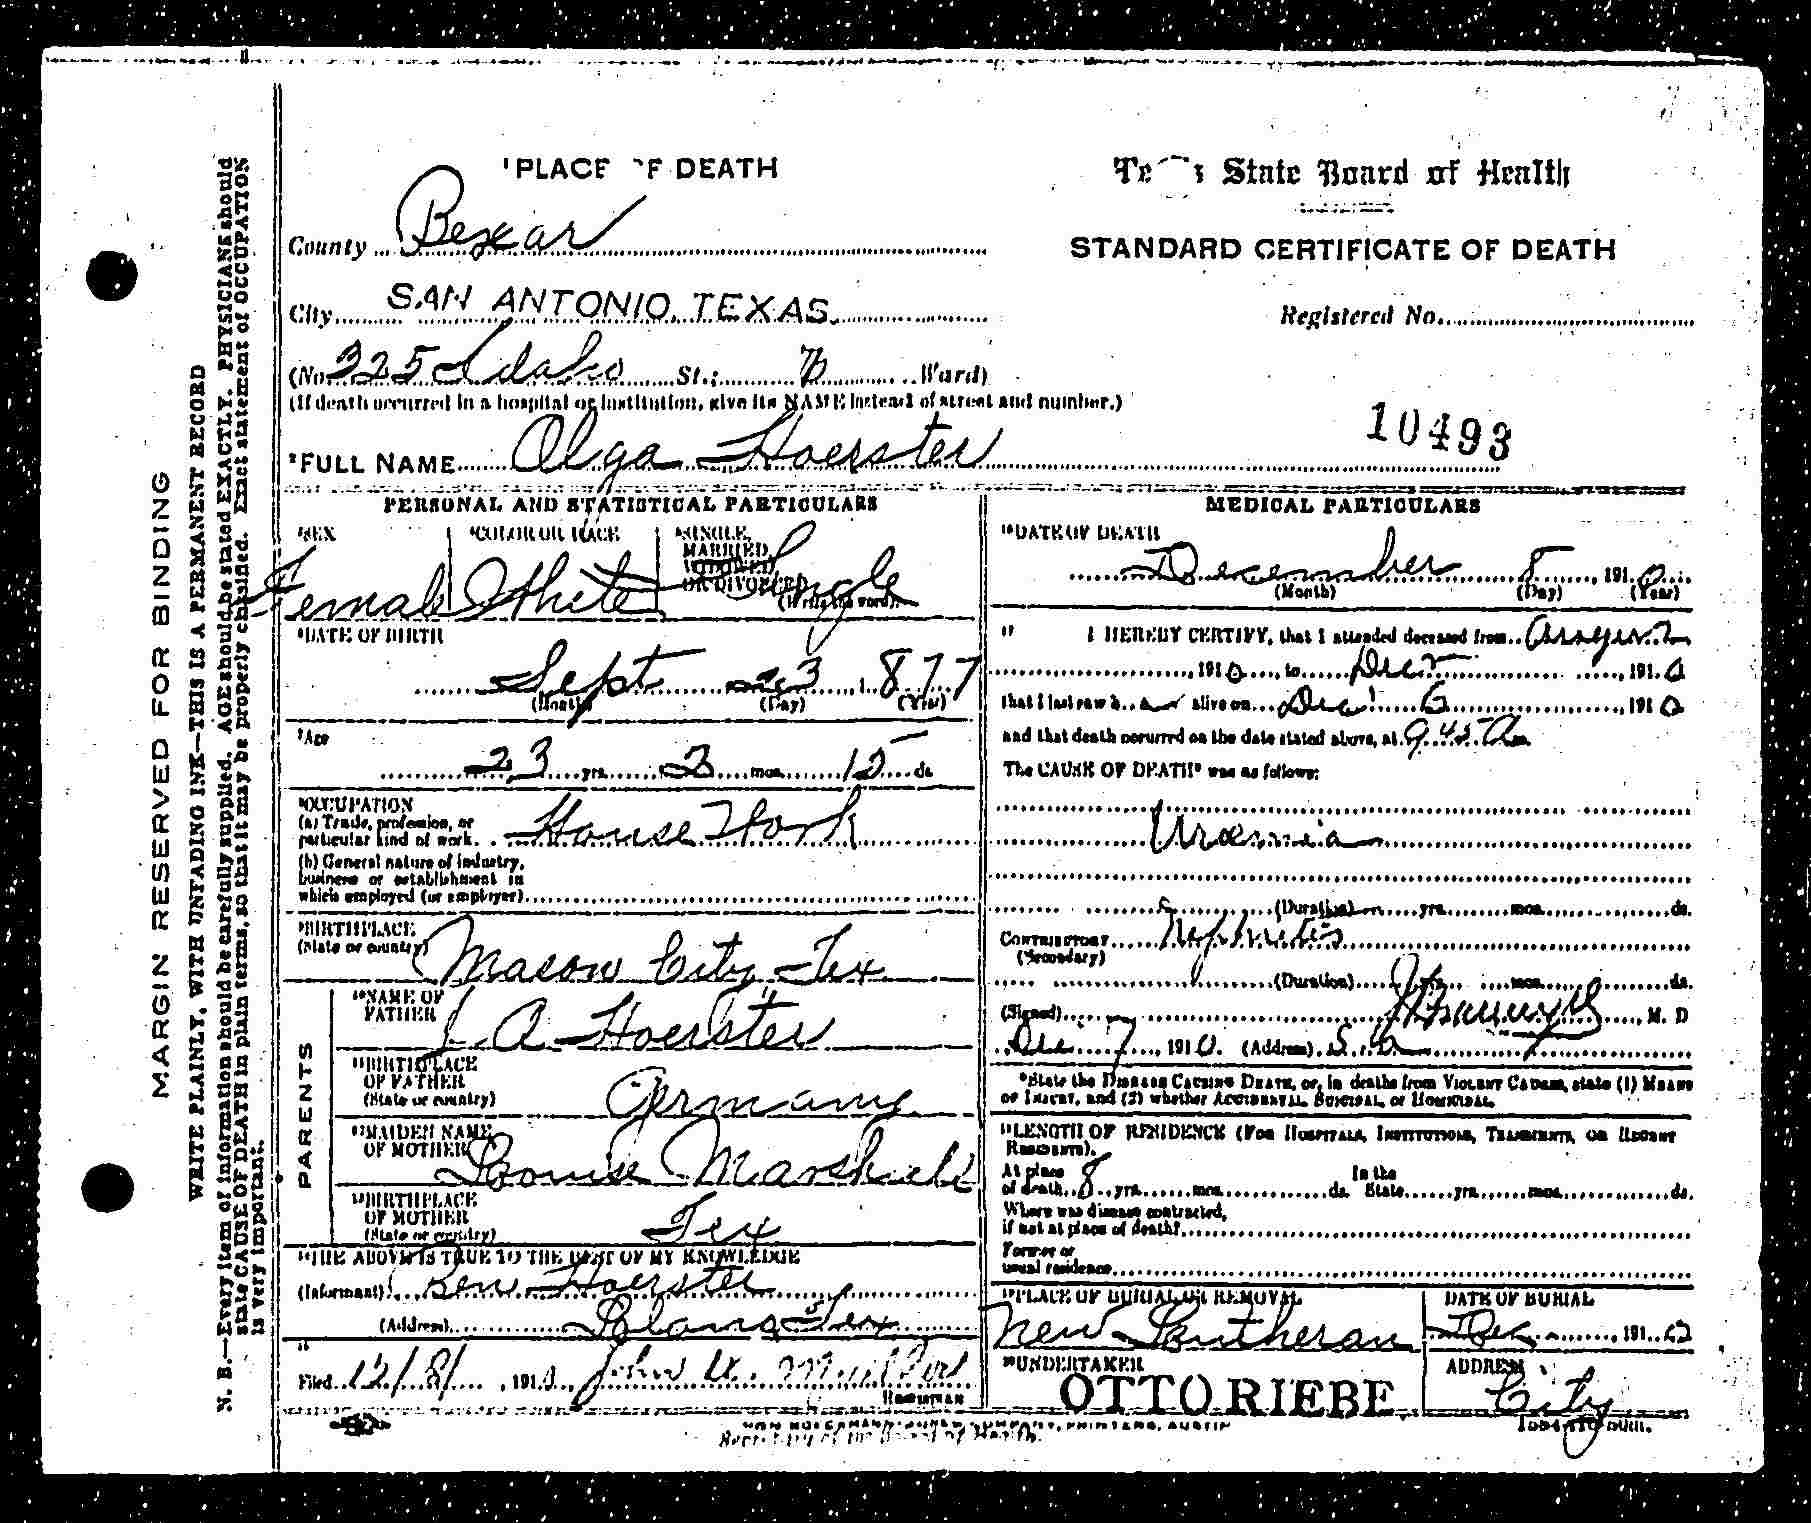 PLACE OF DEATH
Texas State Board of Health
County Bexar
STANDARD CERTIFICATE OF DEATH
City SAN ANTONIO, TEXAS
Registered No.
(No. 325 Idaho St.; Ward)
(If death occurred in a hospital or institution, give its NAME instead of street and number.)
10493
FULL NAME Olga Hoerster
PERSONAL AND STATISTICAL PARTICULARS
SEX
Female
COLOR OR RACE
White
SINGLE, MARRIED, WIDOWED, OR DIVORCED
(Write the word)
Single
DATE OF BIRTH
Sept 23, 1877
(Month) (Day) (Year)
AGE
23 yrs. 2 mos. 15 ds.
OCCUPATION
(a) Trade, profession, or
particular kind of work House Work
(b) General nature of industry,
business or establishment in
which employed (or employer)
BIRTHPLACE
(State or country) Mason City, Tex
PARENTS
NAME OF FATHER
J A Hoerster
BIRTHPLACE OF FATHER
(State or country) Germany
MAIDEN NAME OF MOTHER
Louise
BIRTHPLACE OF MOTHER
(State or country) Tex
THE ABOVE IS TRUE TO THE BEST OF MY KNOWLEDGE
(Informant) Ben Hoerster
(Address) Tex
Filed 12/8/, 1910, John
REGISTRAR
MEDICAL PARTICULARS
DATE OF DEATH
December 8, 1910
(Month) (Day) (Year)
I HEREBY CERTIFY, that I attended deceased from
1910, to Dec, 1910
that I last saw h alive on Dec 6, 1910
and that death occurred on the date stated above, at 9.45 A m.
The CAUSE OF DEATH* was as follows:
Uraemia
(Duration) yrs. mos. ds.
CONTRIBUTORY Nephritis
(Secondary)
(Duration) yrs. mos. ds.
(Signed) M. D
Dec 7, 1910. (Address) S. A
*State the DISEASE CAUSING DEATH, or, in deaths from VIOLENT CAUSES, state (1) MEANS
OF INJURY, and (2) whether ACCIDENTAL, SUICIDAL, or HOMICIDAL.
LENGTH OF RESIDENCE (FOR HOSPITALS, INSTITUTIONS, TRANSIENTS, OR RECENT
RESIDENTS).
At place In the
of death 8 yrs. mos. ds. State yrs. mos. ds.
Where was disease contracted,
if not at place of death?
Former or
usual residence
PLACE OF BURIAL OR REMOVAL
New Lutheran
DATE OF BURIAL
Dec, 1910
UNDERTAKER
OTTO RIEBE
ADDRESS
City
MARGIN RESERVED FOR BINDING
WRITE PLAINLY, WITH UNFADING INK—THIS IS A PERMANENT RECORD
N. B.—Every item of information should be carefully supplied. AGE should be stated EXACTLY. PHYSICIANS should
state CAUSE OF DEATH in plain terms, so that it may be properly classified. Exact statement of OCCUPATION
is very important.